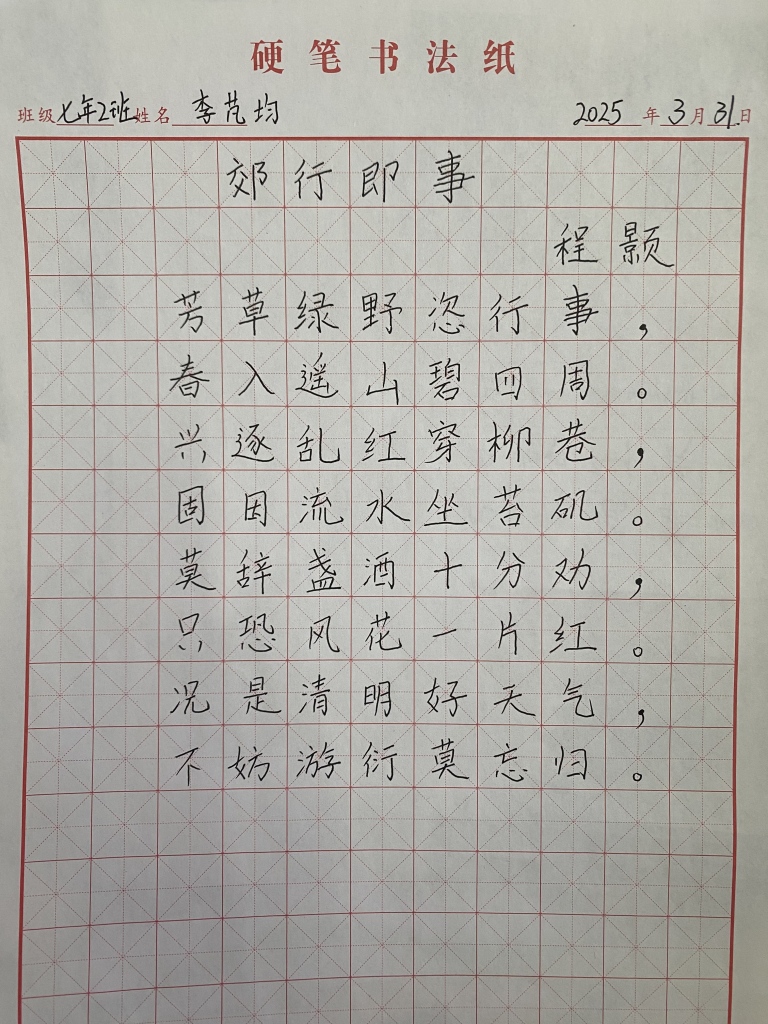 硬笔书法纸
班级七年2班姓名李芃均 2025年3月31日
郊行即事
程颢
芳草绿野恣行事，
春入遥山碧四周。
兴逐乱红穿柳巷，
固因流水坐苔矶。
莫辞盏酒十分劝，
只恐风花一片红。
况是清明好天气，
不妨游衍莫忘归。